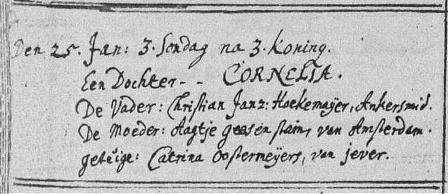 Den 25. Jan: 3. Sondag na 3. Koning.
Een Dochter - - CORNELIA.
De Vader: Christian Janz: Hoekemaijer, Ankersmid.
De Moeder: Aagtje van Amsterdam.
getuige: Catrina Oostermeijers, van jever.